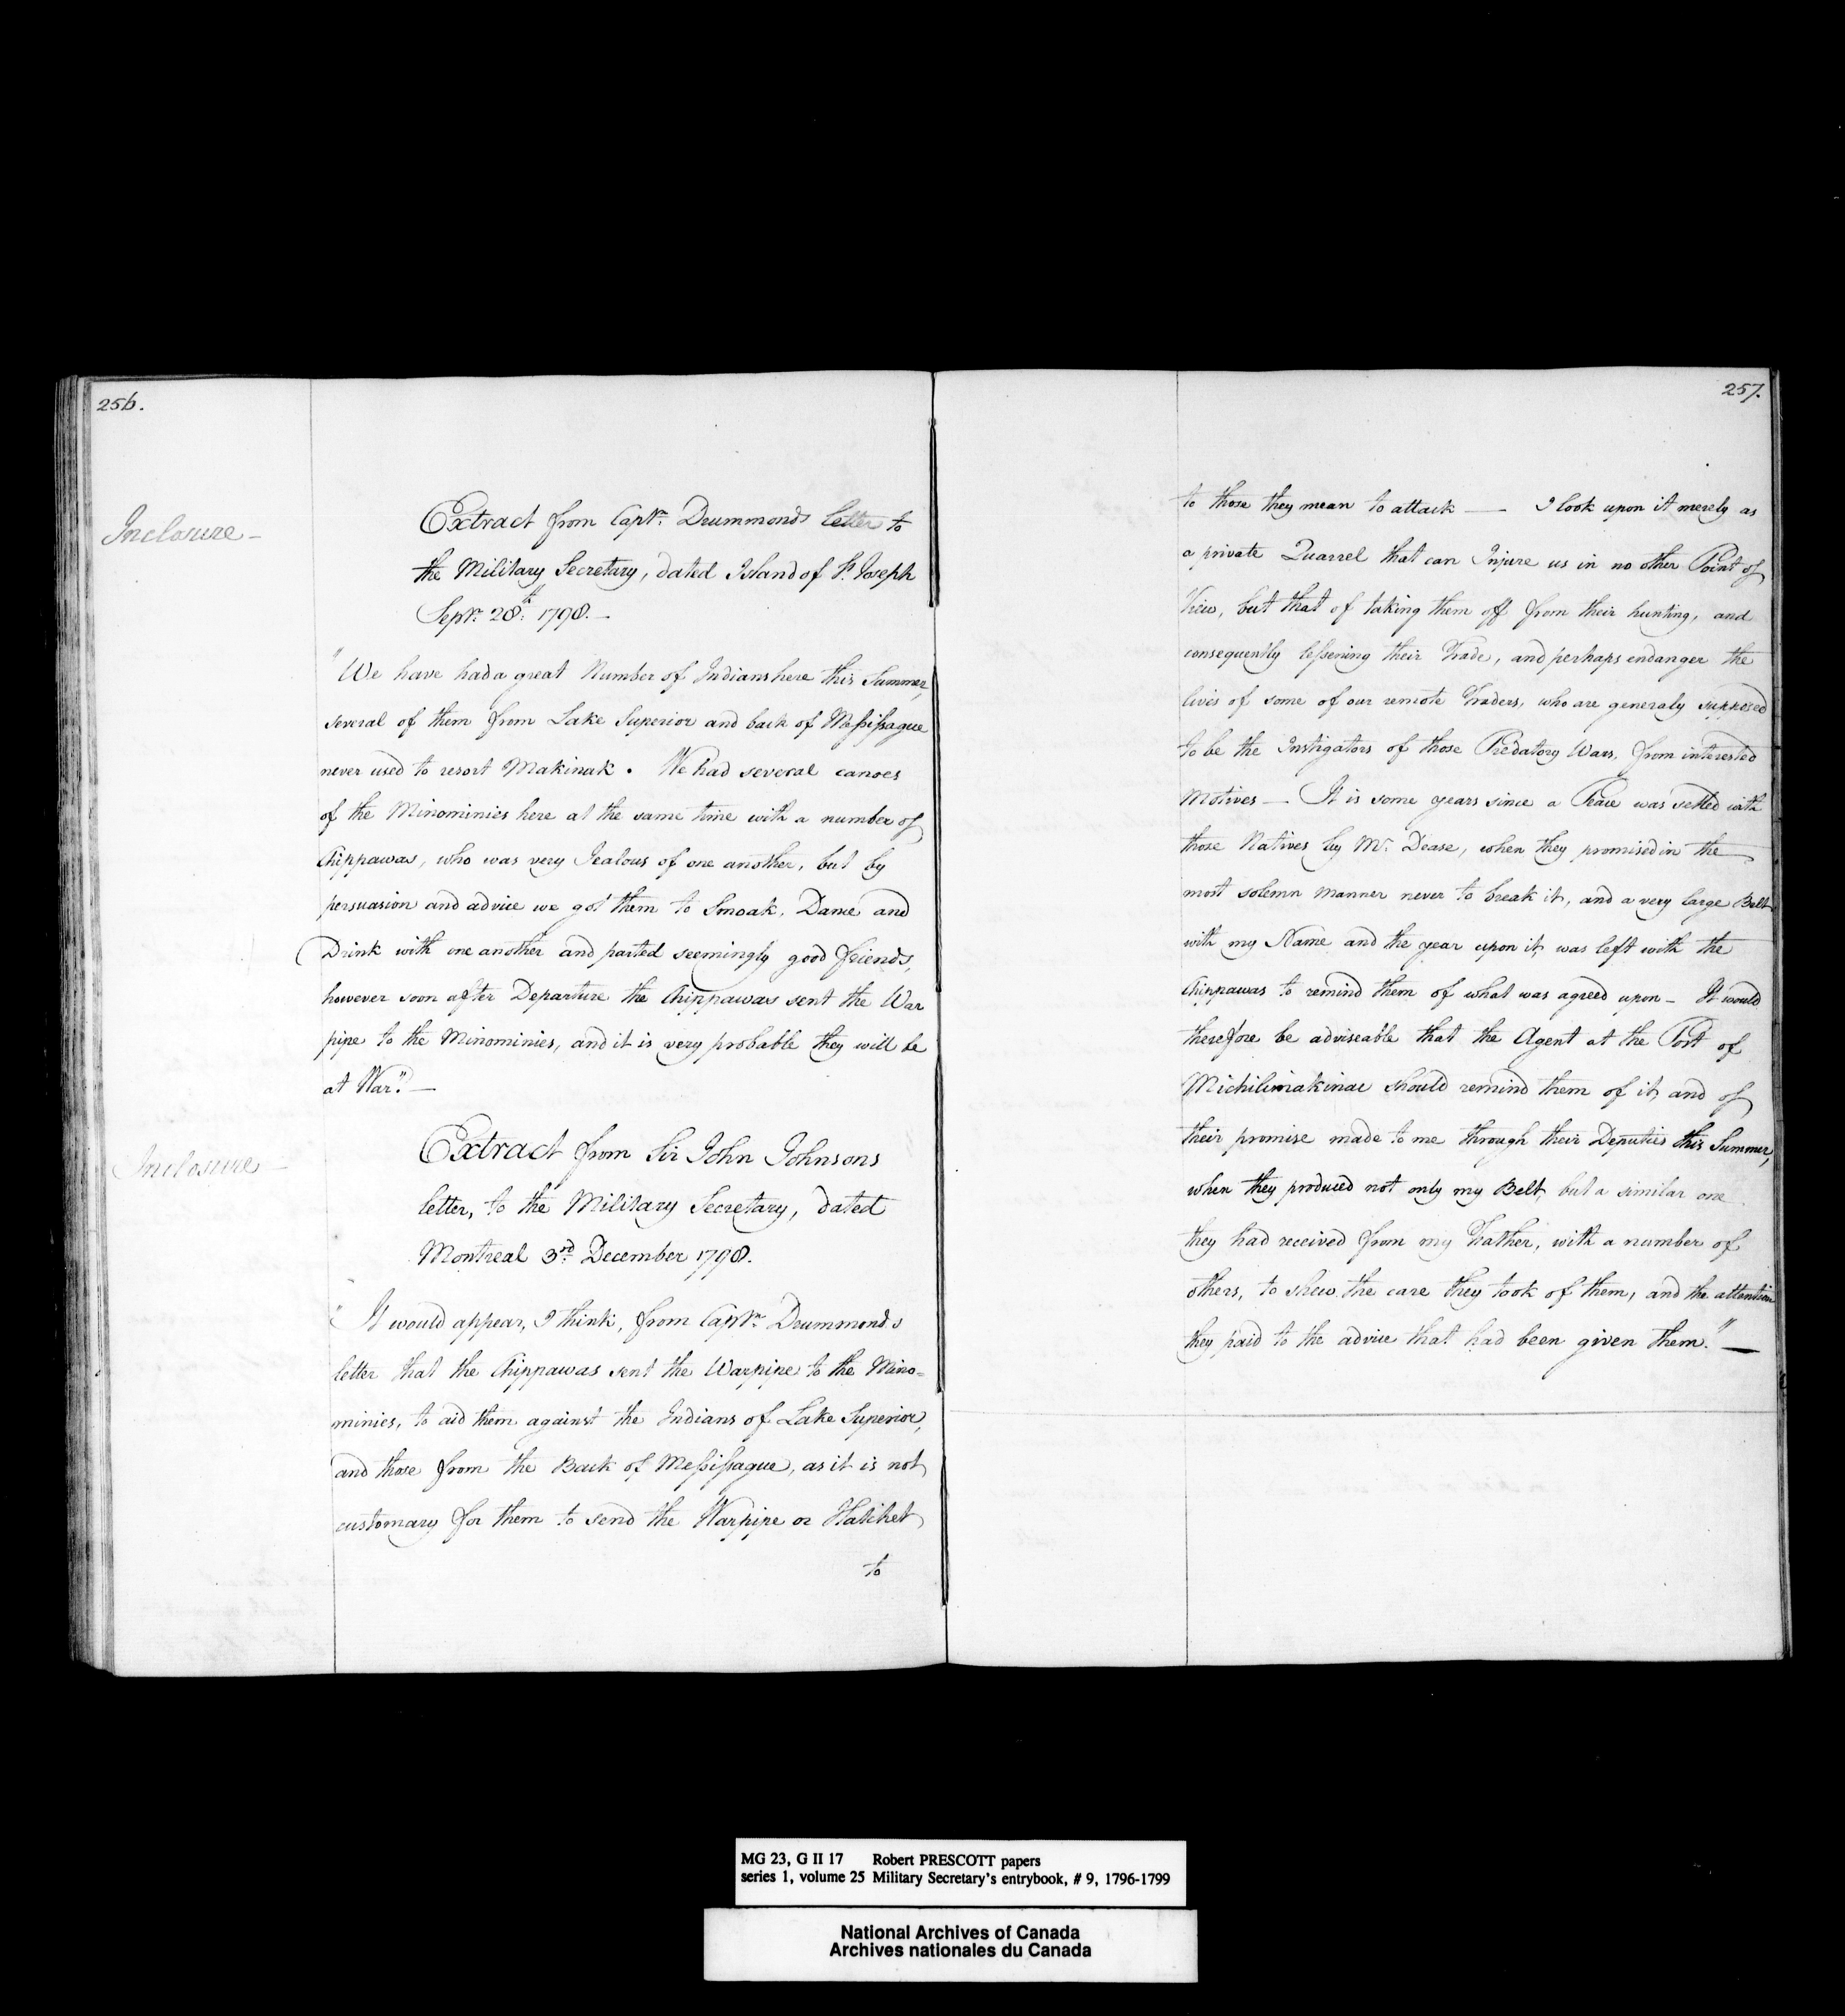 256.
Inclosure —
Extract from Captn. Drummonds letter to
the Military Secretary, dated Island of St. Joseph
Sepr. 28th. 1798. —
"We have had a great Number of Indians here this Summer,
several of them from Lake Superior and back of Messissague
never used to resort Makinak. We had several canoes
of the Minominies here at the same time with a number of
Chippawas, who was very Jealous of one another, but by
persuasion and advice we got them to Smoak, Dance and
Drink with one another and parted seemingly good friends,
however soon after Departure the Chippawas sent the War
pipe to the Minominies, and it is very probable they will be
at War." —
Inclosure —
Extract from Sir John Johnsons
letter, to the Military Secretary, dated
Montreal 3rd. December 1798.
"It would appear, I think, from Captn. Drummonds
letter that the Chippawas sent the Warpipe to the Mino=
minies, to aid them against the Indians of Lake Superior,
and those from the Back of Messissague, as it is not
customary for them to send the Warpipe or Hatchet
to
257.
to those they mean to attack — I look upon it merely as
a private Quarrel that can Injure us in no other Point of
View, but that of taking them off from their hunting, and
consequently lessening their Trade, and perhaps endanger the
lives of some of our remote Traders, who are generaly supposed
to be the Instigators of those Predatory Wars, from interested
Motives — It is some years since a Peace was setled with
those Natives by Mr. Dease, when they promised in the
most solemn Manner never to break it, and a very large Belt
with my Name and the year upon it, was left with the
Chippawas to remind them of what was agreed upon — It would
therefore be adviseable that the Agent at the Post of
Michilimakinac should remind them of it, and of
their promise made to me through their Deputies this Summer,
when they produced not only my Belt, but a similar one
they had received from my Father, with a number of
others, to shew the care they took of them, and the attention
they paid to the advice that had been given them." —
MG 23, G II 17 Robert PRESCOTT papers
series 1, volume 25 Military Secretary's entrybook, # 9, 1796-1799
National Archives of Canada
Archives nationales du Canada